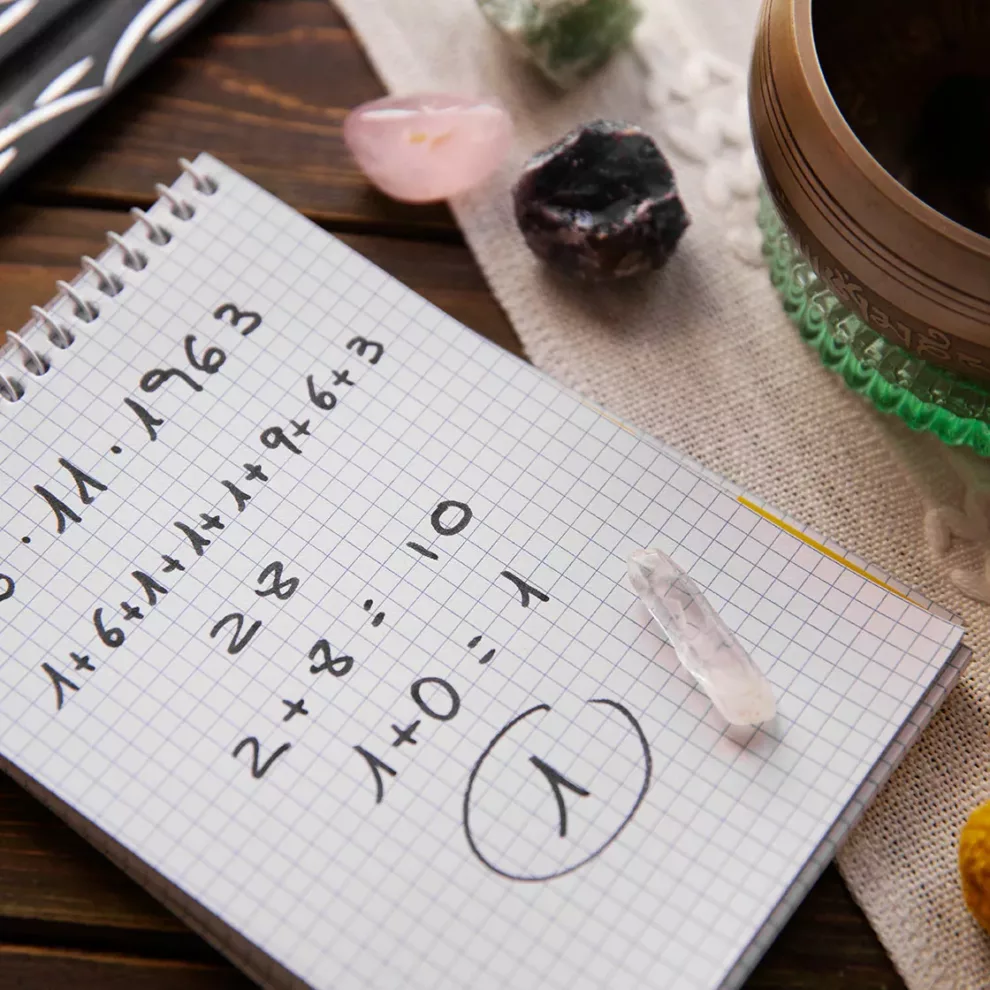 6.11.1963
1+6+1+1+1+9+6+3
28
2+8=10
1+0=1
1